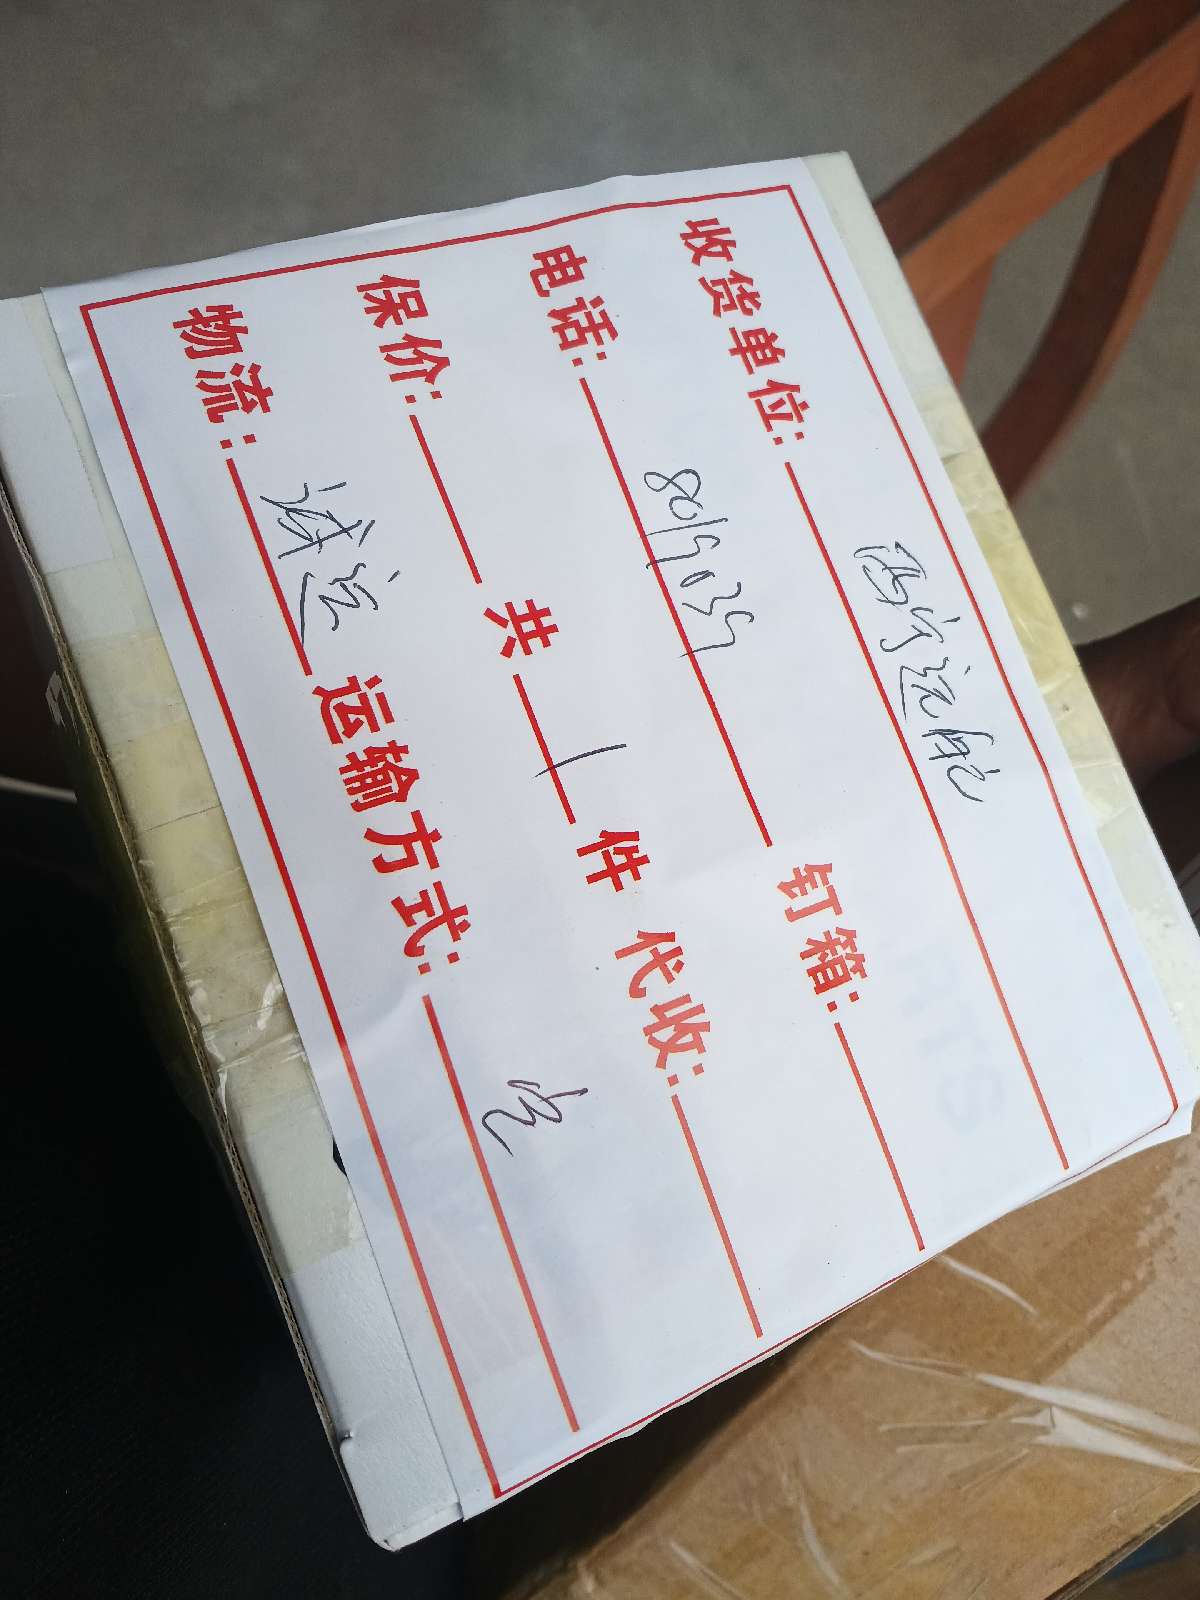 收货单位: 西宁远航
电话: 8015035 钉箱:
保价: 共 1 件 代收:
物流: 诚运 运输方式: